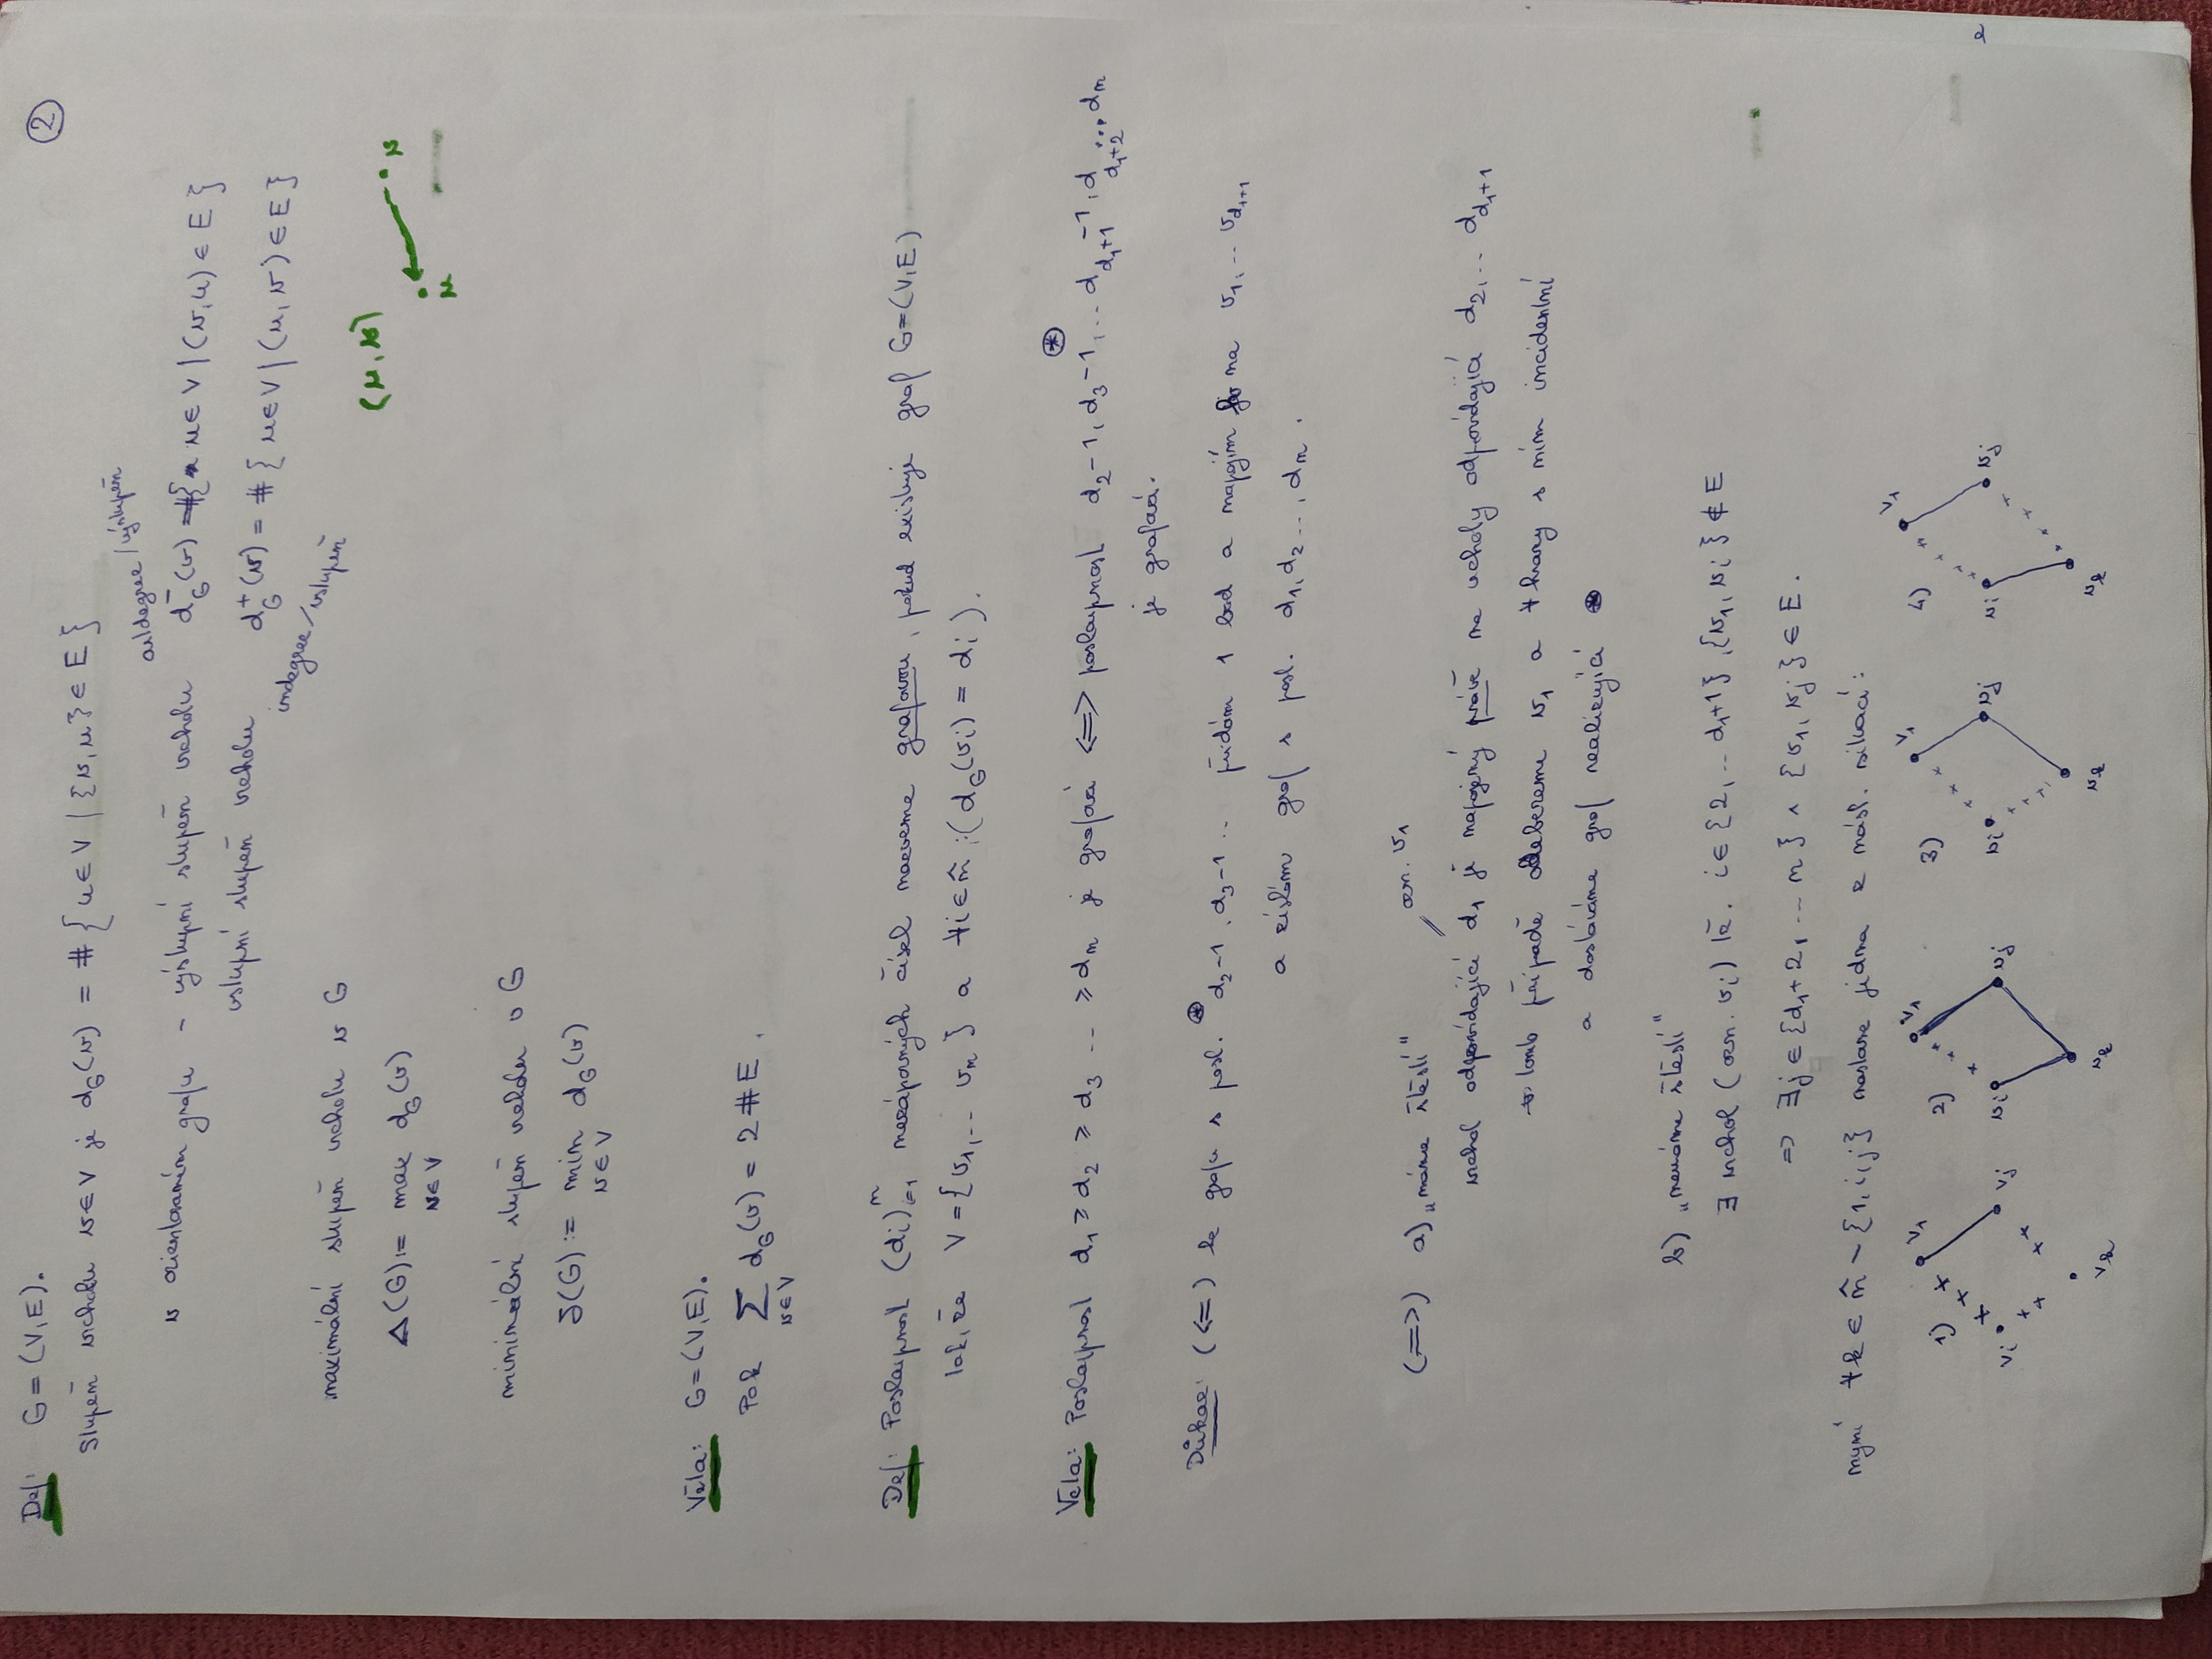 ②
Def: G=(V,E).
Stupeň vrcholu v∈V je d_G(v) = #{u∈V | {v,u}∈E}
outdegree/výstupeň
v orientovaném grafu - výstupní stupeň vrcholu d_G^-(v) = #{u∈V | (v,u)∈E}
vstupní stupeň vrcholu d_G^+(v) = #{u∈V | (u,v)∈E}
indegree/vstupeň
(u,v)
u v
maximální stupeň vrcholu v G
Δ(G) := max d_G(v)
v∈V
minimální stupeň vrcholu v G
δ(G) := min d_G(v)
v∈V
Věta: G=(V,E).
Pak ∑ d_G(v) = 2#E.
v∈V
Def: Posloupnost (d_i)_{i=1}^n nezáporných čísel nazveme grafovou, pokud existuje graf G=(V,E)
tak, že V={v_1,... v_n} a ∀i∈n̂ :(d_G(v_i) = d_i).
Věta: Posloupnost d_1 ≥ d_2 ≥ d_3 ... ≥ d_n je grafová <=> posloupnost d_2-1, d_3-1, ... d_{d_1+1}-1, d_{d_1+2} ... d_n ⊛
je grafová.
Důkaz: (<=) k grafu s posl. ⊛ d_2-1, d_3-1 ... přidám 1 bod a napojím ho na v_1, ... v_{d_1+1}
a získám graf s posl. d_1, d_2 ..., d_n.
(=>) a) „máme štěstí"
ozn. v_1
vrchol odpovídající d_1 je napojený právě na vrcholy odpovídající d_2, ... d_{d_1+1}
v tomto případě odebereme v_1 a ∀ hrany s ním incidentní
a dostáváme graf realizující ⊛
b) „nemáme štěstí"
∃ vrchol (ozn. v_i) tž. i∈{2,... d_1+1}, {v_1,v_i}∉E
=> ∃j∈{d_1+2, ... n} ∧ {v_1,v_j}∈E.
nyní ∀k∈n̂ ∖ {1,i,j} nastane jedna z násl. situací:
1) v_1 v_i v_j v_k
2) v_1 v_i v_j v_k
3) v_1 v_i v_j v_k
4) v_1 v_i v_j v_k